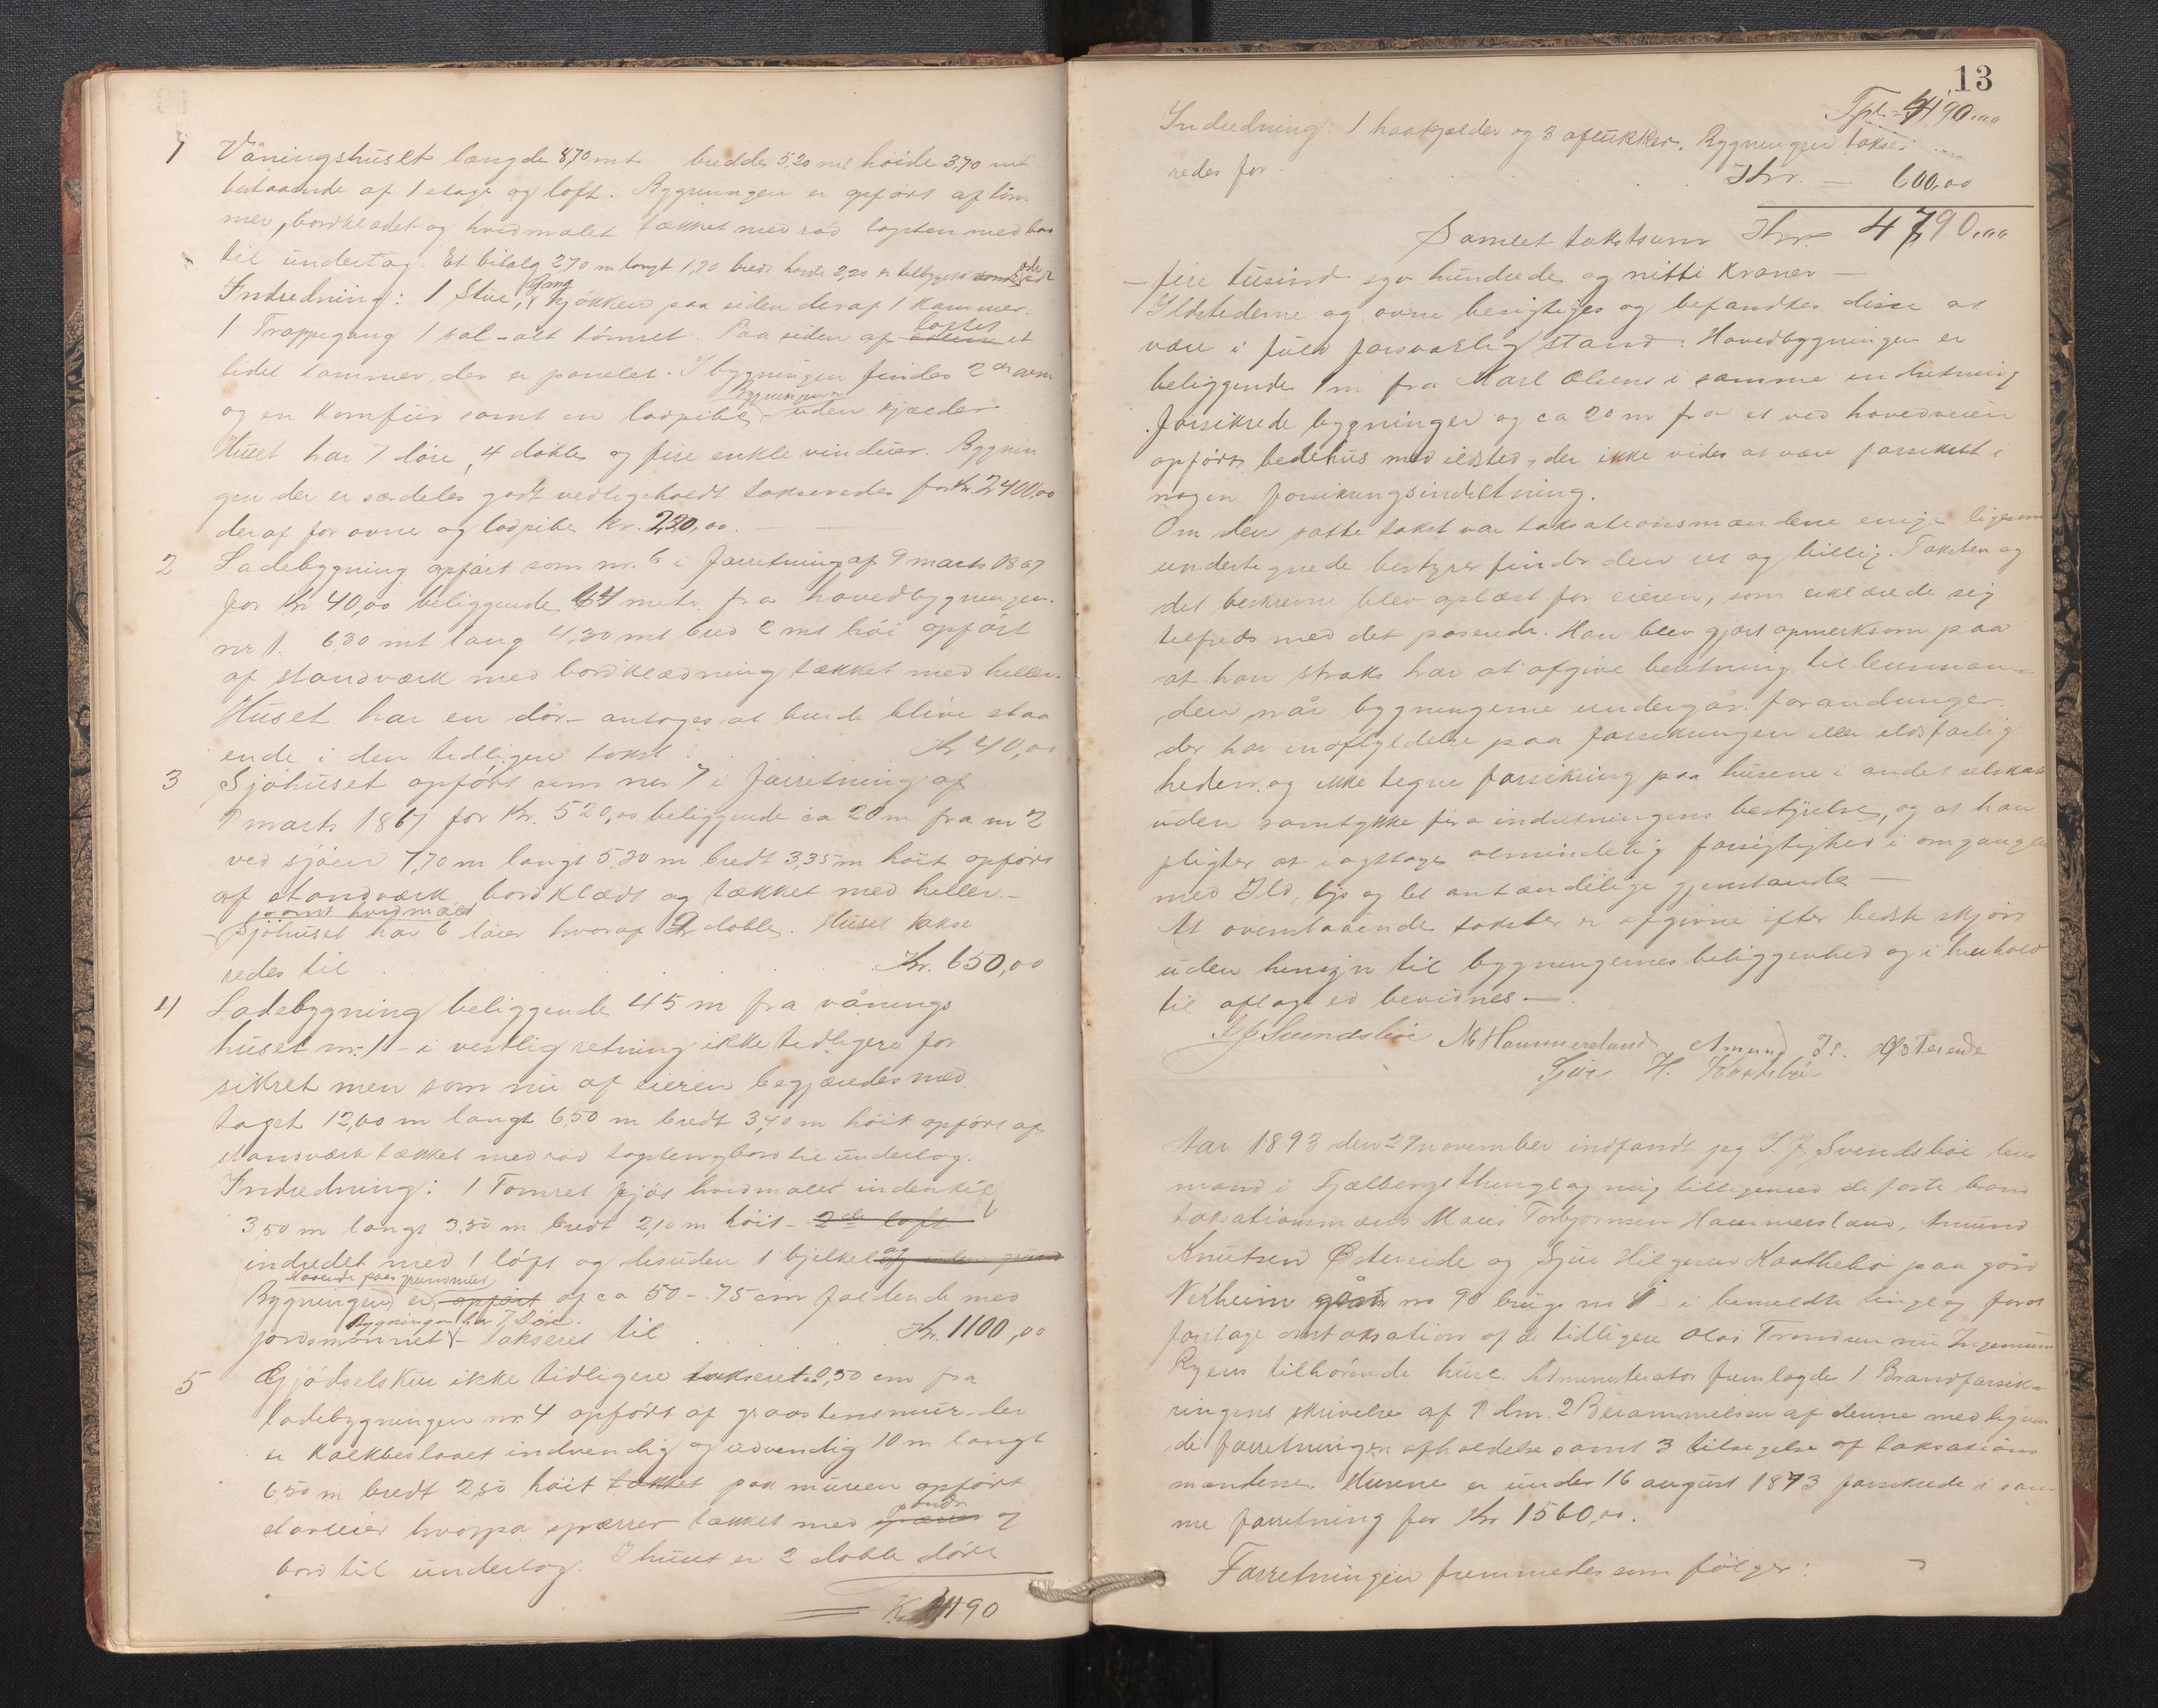 1 Våningshuset længde 8,70 mt bredde 5,20 mt höide 3,70 mt
bestaaende af 1 etage og loft. Bygningen er opfört af töm
mer, bordklædet og hvidmalet tækket med röd tagsten med bord
til undertag. Et bilslag 2,70 m langt 1,70 bredt höide 2,20 er tilbygget
Indredning: 1 Stue, Gang, kjökken paa siden deraf 1 kammer.
1 Trappegang 1 sal - alt tömret. Paa siden af loftet et
lidet kammer, der er panelet. I bygningen findes 2de ovne
og en Komfür samt en ladpibe, Bygningen uden kjælder
Huset har 7 döre, 4 doble og fire enkle vinduer. Bygnin
gen der er særdeles godt vedligeholdt takseredes for Kr. 2400,00
deraf for ovne og ladpibe kr. 220,00.
2 Ladebygning opfört som nr. 6 i forretning af 9 marts 1867
for Kr 40,00 beliggende 64 metr. fra hovedbygningen.
nr 1. 6,30 mt lang 4,30 mt bred 2 mt höi opfört
af standværk med bordklædning tækket med heller.
Huset har en dör - antages at burde blive staa
ende i den tidligere takst. Kr 40,00
3 Sjöhuset opfört som nr 7 i forretning af
9 marts 1867 for Kr. 520,00 beliggende ca 20 m fra nr 2
ved sjöen 7,70 m langt 5,30 m bredt 3,35 m höit opfört
af standværk, bordklædt og tækket med heller. -
samt hvidmalet
Sjöhuset har 6 döier hvoraf 2 doble. Huset takse
redes til Kr. 650,00
4 Ladebygning beliggende 45 m fra vånings
huset nr. 1 - i vestlig retning ikke tidligere for
sikret men som nu af eieren begjæredes med
taget 12,00 m langt 6,50 m bredt 3,40 m höit opfört af
standværk tækket med röd tagsten og bord til undertag.
Indredning: 1 Tömret fjös hvidmalet indentil
3,50 m langt 3,50 m bredt 2,10 m höit - 2de loft
indredet med 1 löft og desuden 1 bjelkelag
Bygningen er staaende paa grundmur af ca 50 - 75 cm faldende med
Bygningen har 7 Döre.
jordsmonnet - takseret til Kr. 1100,00
5 Gjödselskur ikke tidligere takseret 0,50 cm fra
ladebygningen nr. 4 opfört af graastensmur der
er kalkbeslaaet indvendig og udvendig 10 m langt
6,50 m bredt 2,50 höit tækket paa muren opfört
stavleier hvorpaa sperrer tækket med og
bord til undertag. I huset er 2 doble döre
Kr 4190
13
Tpt. 4190,00
Indredning: 1 haakjælder og 3 aflukker. Bygningen takse
redes for Kr. - 600,00
Samlet takstsum Kr. 4790,00
- fire tusind syv hundrede og nitti Kroner -
Ildstederne og ovne besigtiges og befandtes disse at
være i fuld forsvarlig stand. Hovedbygningen er
beliggende 1 m fra Karl Olsens i samme indretning
forsikrede bygninger og ca 20 m fra et ved hovedveien
opfört bedehus med ildsted, der ikke vides at være forsikret i
nogen forsikringsindretning.
Om den satte takst var taksationsmændene enige ligesom
undertegnede bestyrer finder den ret og billig. Taksten og
det beskrevne blev oplæst for eieren, som erklærede sig
tilfreds med det passerede. Han blev gjort opmerksom paa
at han straks har at afgive beretning til lensman-
den når bygningerne undergår forandringer
der har indflydelse paa forsikringen eller ildsfarlig
heden og ikke tegne forsikring paa husene i andet selskab
uden samtykke fra indretningens bestyrelse, og at han
pligter at iagttage almindelig forsigtighed i omgangen
med Ild, lys og let antændelige gjenstande -
At ovenstaaende takster er afgivne efter bedste skjön
uden hensyn til bygningernes beliggenhed og i henhold
til aflagt ed bevidnes -
I J Svendsböe M Hammersland Amund K. Östereide
Sjur H. Kaatebö
Aar 1893 den 27 november indfandt jeg I. J. Svendsböe lens
mand i Fjælbergs thinglag mig tilligemed de faste brand
taksationsmænd Mons Torbjörnsen Hammersland, Amund
Knutsen Östereide og Sjur Hilgesen Kaathebö paa gård
Nerheim gårds no 90 brugs no 1 i bemeldte tinglag for at
foretage omtaksation af de tidligere Olai Trondsen nu Ingemund
Ryens tilhörende huse. Administrator fremlagde 1 Brandforsik-
ringens skrivelse af 9 dm. 2 Berammelsen af denne med lignen
de forretningers afholdelse samt 3 tilsigelse af taksations
mændene. Husene er under 16 august 1873 forsikrede i sam
me forretning for Kr 1560,00.
Forretningen fremmedes som fölger: